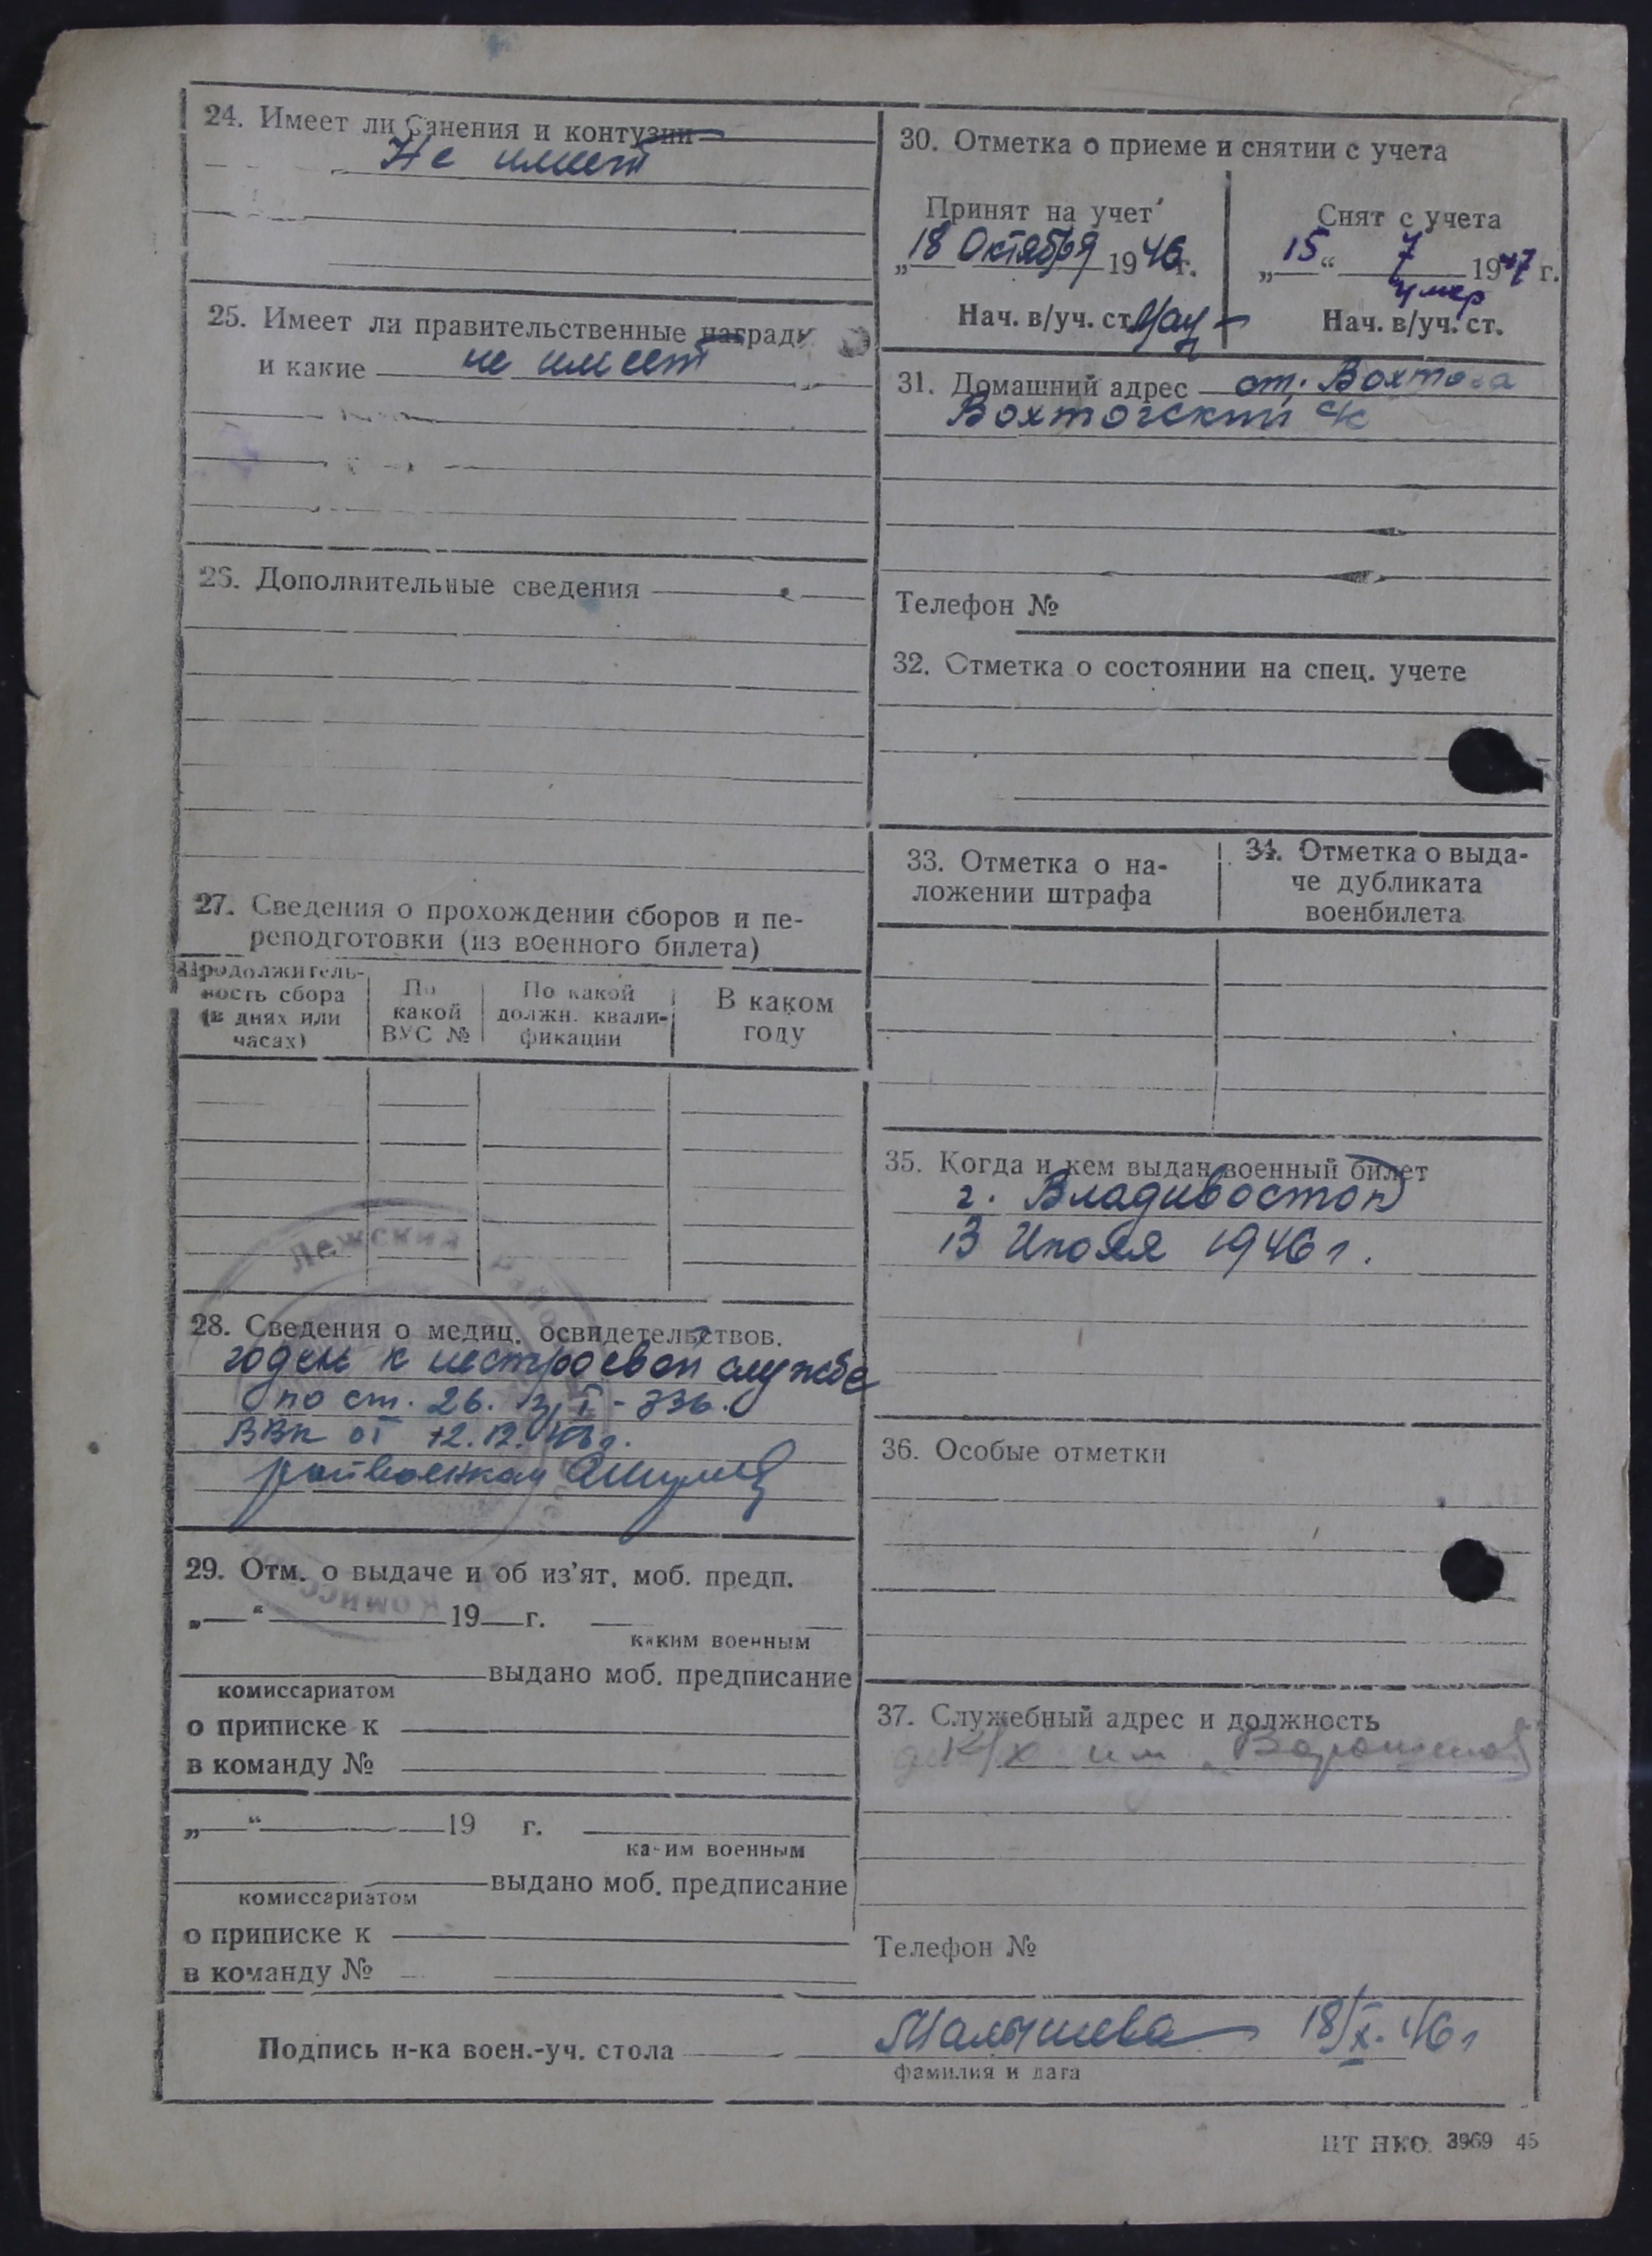 24. Имеет ли ранения и контузии
Не имеет
25. Имеет ли правительственные награды
и какие не имеет
26. Дополнительные сведения
27. Сведения о прохождении сборов и пе-
реподготовки (из военного билета)
Продолжитель-
ность сбора
(в днях или
часах)
По
какой
ВУС №
По какой
должн. квали-
фикации
В каком
году
28. Сведения о медиц. освидетельствов.
годен к нестроевой службе
по ст. 26. 336.
ВВК от 12.12.
райвоенком
Лежский
комисс
29. Отм. о выдаче и об из'ят. моб. предп.
„ “ 19 г.
каким военным
выдано моб. предписание
комиссариатом
о приписке к
в команду №
„ “ 19 г.
каким военным
выдано моб. предписание
комиссариатом
о приписке к
в команду №
30. Отметка о приеме и снятии с учета
Принят на учет
„18 Октября 1946г.
Нач. в/уч. ст.
Снят с учета
„15“ 7 1947 г.
умер
Нач. в/уч. ст.
31. Домашний адрес ст. Вохтога
Вохтогский с/с
Телефон №
32. Отметка о состоянии на спец. учете
33. Отметка о на-
ложении штрафа
34. Отметка о выда-
че дубликата
военбилета
35. Когда и кем выдан военный билет
г. Владивосток
13 Июля 1946 г.
36. Особые отметки
37. Служебный адрес и должность
к/х им Ворошилова
Телефон №
Подпись н-ка воен.-уч. стола Малышева 18/X. 46 г
фамилия и дата
ЦТ НКО 3969 45